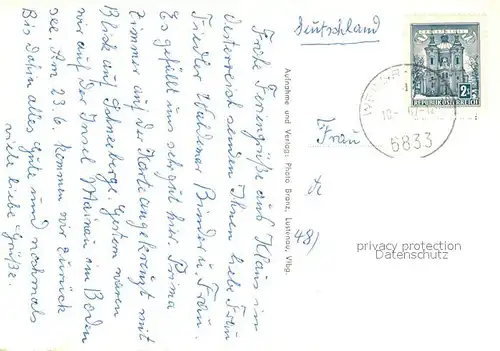 Frohe Feriengrüße aus Klaus in
Österreich senden Ihnen liebe Frau
Fiedler Waldemar Binder u. Frau.
Es gefällt uns sehr gut hier. Prima
Zimmer auf der Karte angekreuzt mit
Blick auf Schneeberge. Gestern waren
wir auf der Insel Mainau im Boden
see. Am 23.6. kommen wir zurück
Bis dahin alles Gute und nochmals
viele liebe Grüße.
Aufnahme und Verlag: Photo Branz, Lustenau, Vlbg.
Deutschland
REPUBLIK ÖSTERREICH
6833
Frau
48)
privacy protection
Datenschutz